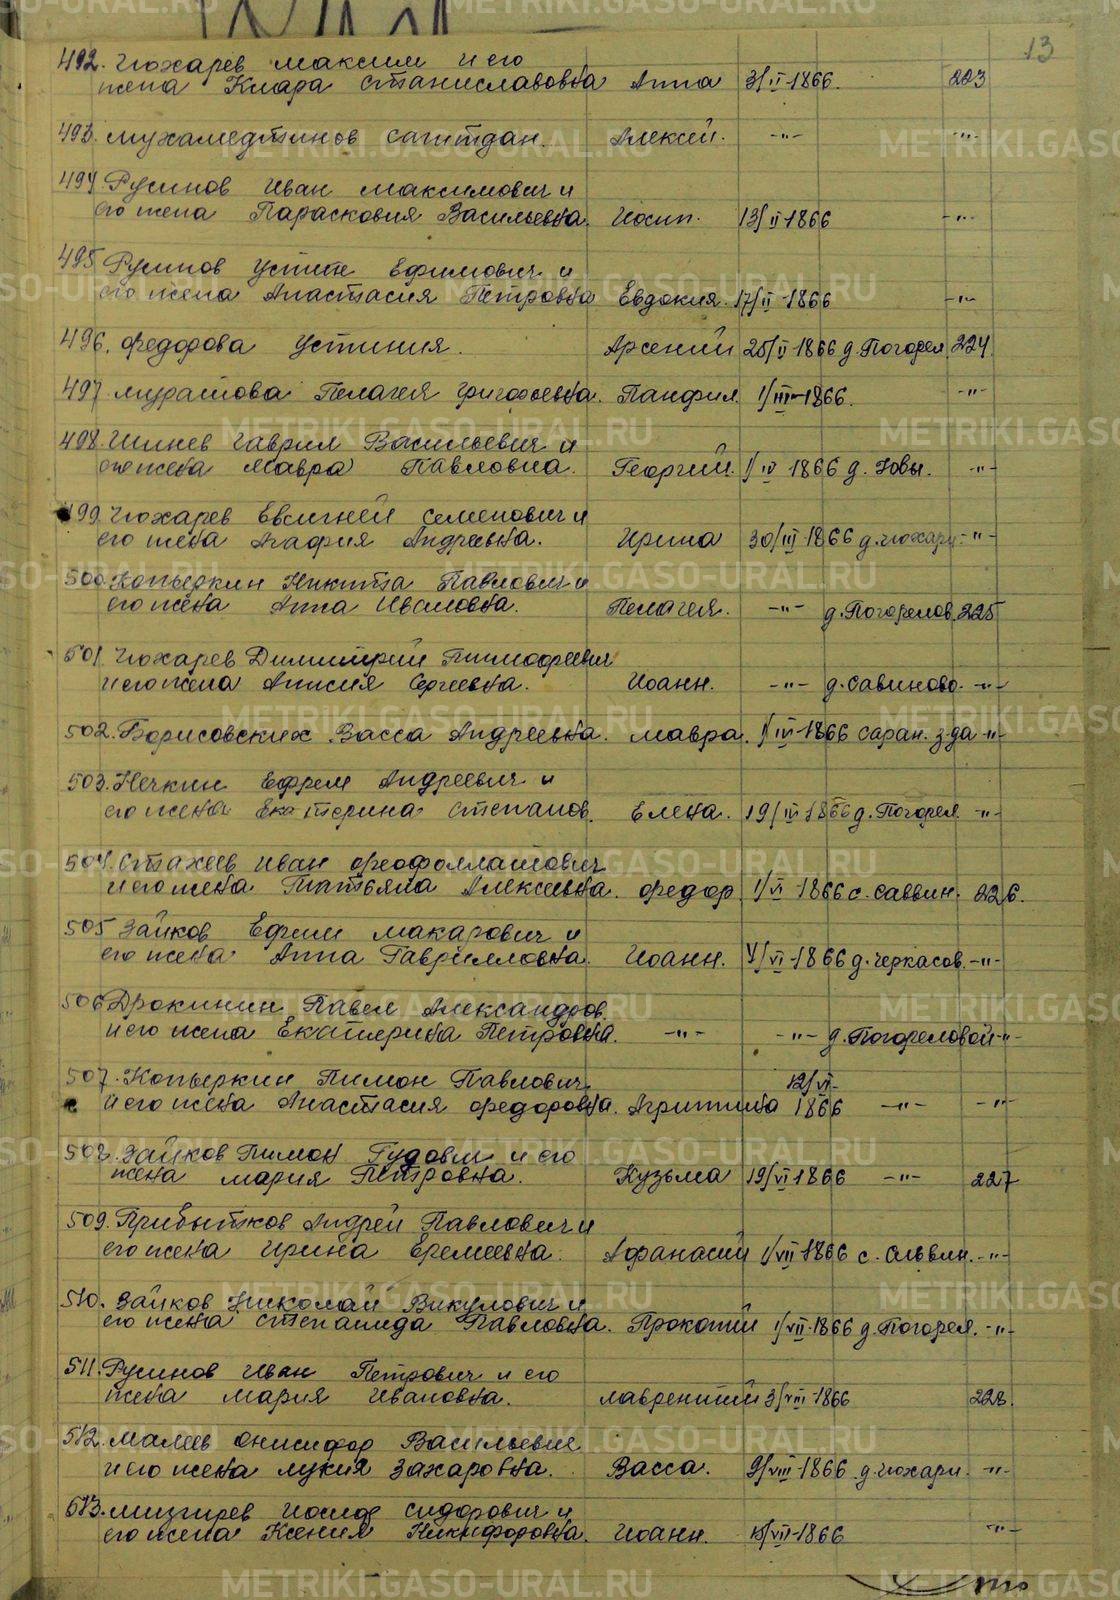 13
492. Чюхарев Максим и его
жена Клара Станиславовна Анна 3/II-1866. 223
493. Мухамедтинов Сагитдан. Алексей. -"- -"-
494. Русинов Иван Максимович и
его жена Парасковия Васильевна. Иосип. 13/II-1866 -"-
495 Русинов Устин Ефимович и
его жена Анастасия Петровна Евдокия. 17/II-1866 -"-
496. Федорова Устиния. Арсений 25/II 1866 д. Погорел. 224
497. Мурашова Пелагея Григорьевна. Панфил. 1/III-1866. -"-
498. Шинев Гаврил Васильевич и
его жена Мавра Павловна. Георгий. 1/IV 1866 д. Ювы. -"-
499. Чюхарев Евсигней Семенович и
его жена Агафия Андреевна. Ирина 30/III-1866 д. Чюхари -"-
500. Копыркин Никита Павлович и
его жена Анна Ивановна. Пелагея. -"- д. Погорелов. 225
501 Чюхарев Димитрий Тимофеевич
и его жена Анисия Сергеевна. Иоанн. -"- д. Савиново. -"-
502. Борисовских Васса Андреевна. Мавра. 1/IV-1866 Саран. з-да -"-
503. Нечкин Ефрем Андреевич и
его жена Екатерина Степанов. Елена. 19/IV 1866 д. Погорел. -"-
504. Стахеев Иван Феофоллатович
и его жена Татьяна Алексеевна. Федор 1/VI 1866 с. Саввин. 226.
505 Зайков Ефим Макарович и
его жена Анна Гавриловна. Иоанн. 4/VI-1866 д. Черкасов. -"-
506 Дрокинин Павел Александров.
и его жена Екатерина Петровна. -"- -"- д. Погореловой -"-
507. Копыркин Пимон Павлович 12/VI-
и его жена Анастасия Федоровна. Агрипина 1866 -"- -"-
508. Зайков Пимон Гудовы и его
жена Мария Петровна. Кузьма 19/VI 1866 -"- 227
509. Прибытков Андрей Павлович и
его жена Ирина Еремеевна. Афанасий 1/VII 1866 с. Саввин. -"-
510. Зайков Николай Викулович и
его жена Степанида Павловна. Прокопий 1/VII-1866 д. Погорел. -"-
511. Русинов Иван Петрович и его
жена Мария Ивановна. Лаврентий 3/VIII 1866 228.
512. Малеев Онисифор Васильевич
и его жена Лукия Захаровна. Васса. 9/VIII-1866 д. Чюхари. -"-
513. Мизгирев Иосиф Сидорович и
его жена Ксения Никифоровна. Иоанн. 15/VII-1866 -"-
METRIKI.GASO-URAL.RU